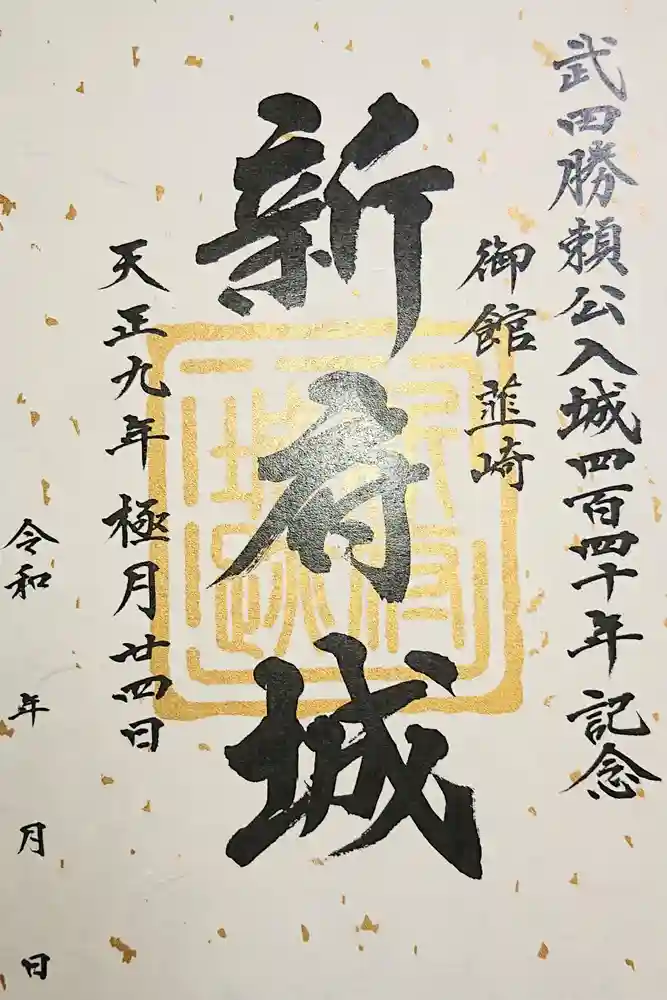 武田勝頼公入城四百四十年記念
御館 韮崎
新府城
天正九年 極月廿四日
令和 年 月 日